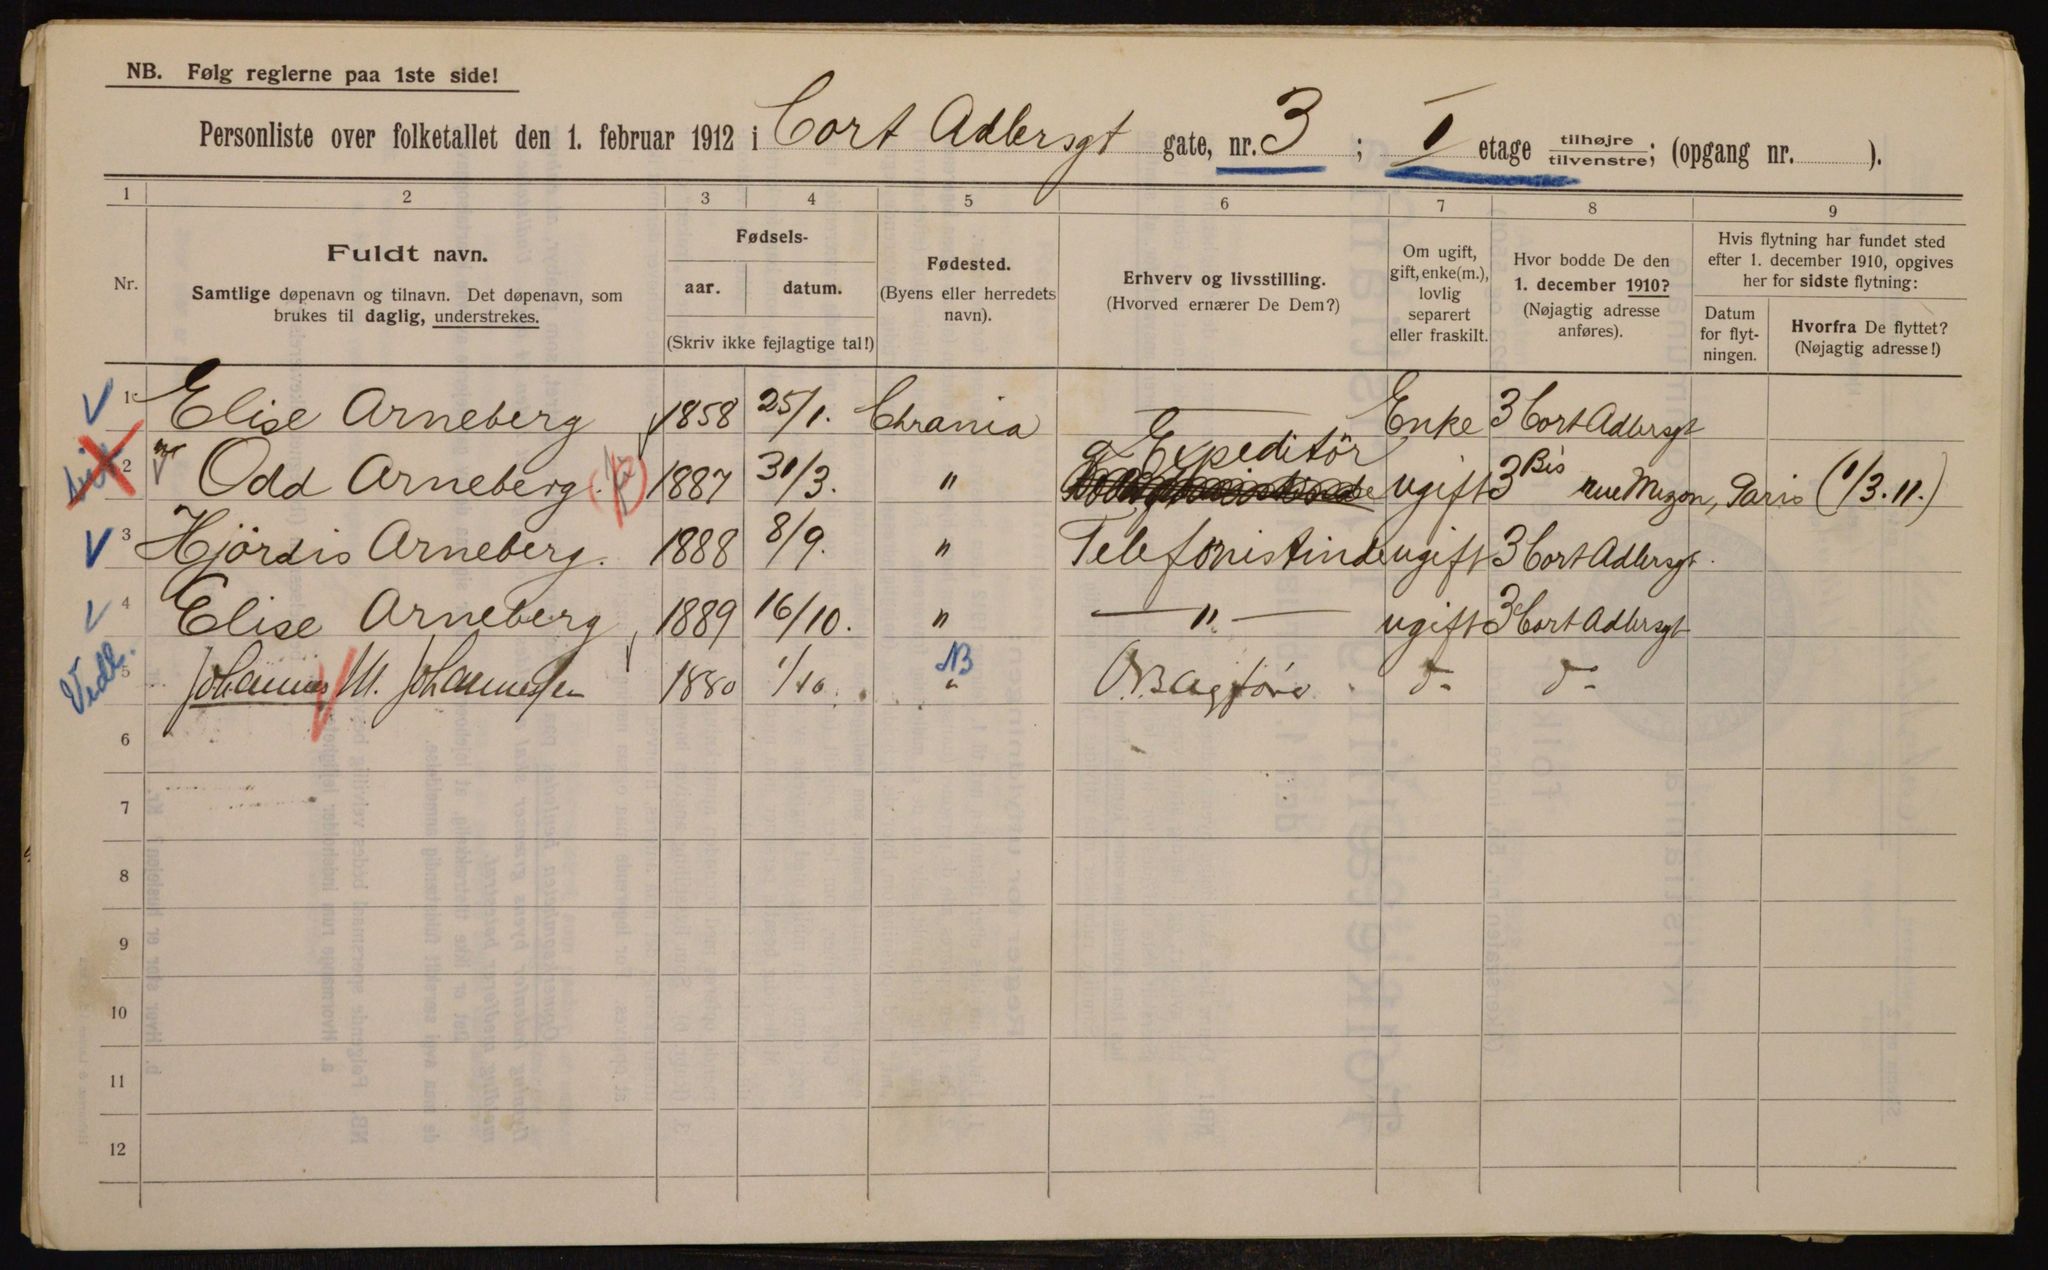 NB. Følg reglerne paa 1ste side!
Personliste over folketallet den 1. februar 1912 i Cort Adlersgt gate, nr. 3 ; I etage tilhøjre/tilvenstre; (opgang nr. ).
1 2 3 4 5 6 7 8 9
Nr.
Fuldt navn.
Samtlige døpenavn og tilnavn. Det døpenavn, som
brukes til daglig, understrekes.
Fødsels-
aar. datum.
(Skriv ikke fejlagtige tal!)
Fødested.
(Byens eller herredets
navn).
Erhverv og livsstilling.
(Hvorved ernærer De Dem?)
Om ugift,
gift, enke(m.),
lovlig
separert
eller fraskilt.
Hvor bodde De den
1. december 1910?
(Nøjagtig adresse
anføres).
Hvis flytning har fundet sted
efter 1. december 1910, opgives
her for sidste flytning:
Datum
for flyt-
ningen.
Hvorfra De flyttet?
(Nøjagtig adresse!)
1 Elise Arneberg 1858 25/1. Chrania — Enke 3 Cort Adlersgt
Expeditör
2 Odd Arneberg. 1887 31/3. " ugift 3 Bis rue Mizon, Paris (1/3.11.)
3 Hjördis Arneberg. 1888 8/9. " Telefonistinde ugift 3 Cort Adlersgt.
4 Elise Arneberg 1889 16/10. " — " — ugift 3 Cort Adlersgt
Vedl.
NB
5 Johannes M. Johannessen 1880 1/10. " O.R.sagförer. d- d-
6
7
8
9
10
11
12